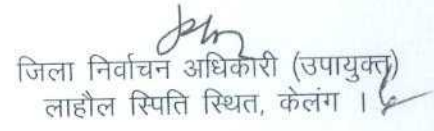 जिला निर्वाचन अधिकारी (उपायुक्त)
लाहौल स्पिति स्थित, केलंग ।